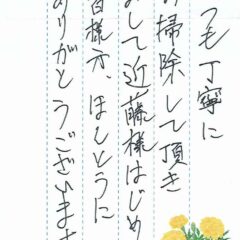 つも丁寧に
お掃除して頂き
みして近藤様はじめ
皆様方、ほんとうに
ありがとうございます